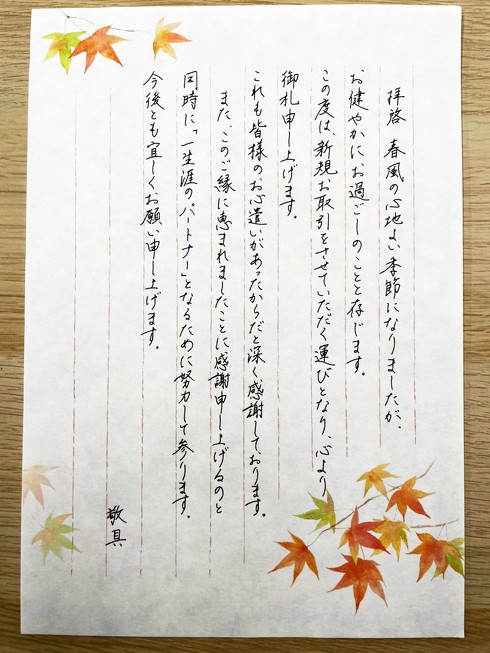 拝啓 春風の心地よい季節になりましたが、
お健やかにお過ごしのことと存じます。
この度は、新規お取引をさせていただく運びとなり、心より
御礼申し上げます。
これも皆様のお心遣いがあったからだと深く感謝しております。
また、このご縁に恵まれましたことに感謝申し上げるのと
同時に「一生涯のパートナー」となるために努力して参ります。
今後とも宜しくお願い申し上げます。
敬具